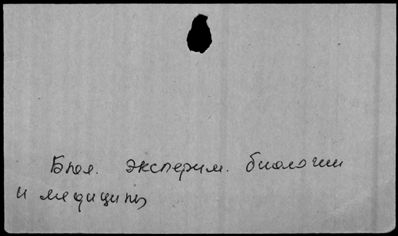 Бюл. эксперим. биологии
и медицины